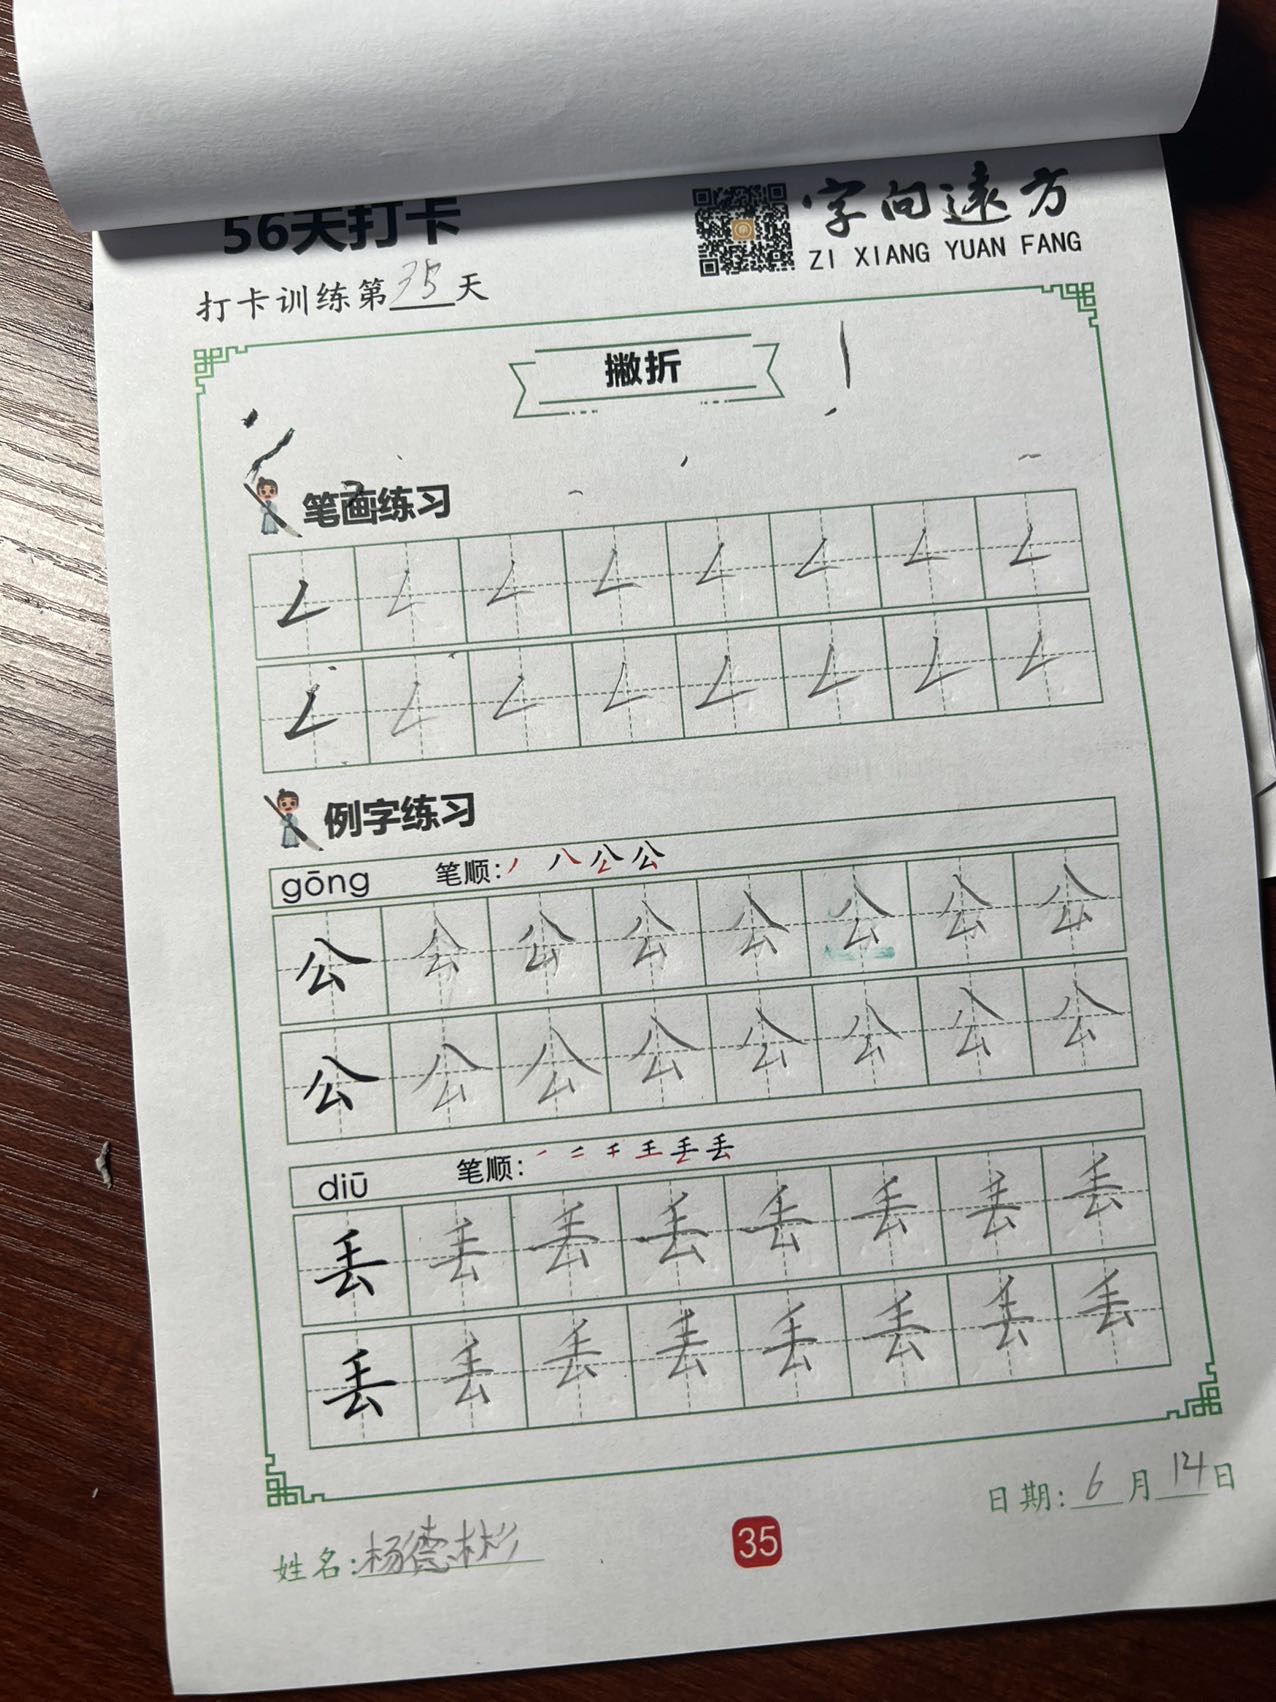 56天打卡
字向遠方
ZI XIANG YUAN FANG
打卡训练第35天
撇折
笔画练习
𠃋 𠃋 𠃋 𠃋 𠃋 𠃋 𠃋 𠃋
𠃋 𠃋 𠃋 𠃋 𠃋 𠃋 𠃋 𠃋
例字练习
gōng 笔顺: 丿 八 公 公
公 公 公 公 公 公 公 公
公 公 公 公 公 公 公 公
diū 笔顺: 一 二 千 王 丢 丢
丢 丢 丢 丢 丢 丢 丢 丢
丢 丢 丢 丢 丢 丢 丢 丢
日期:6月14日
姓名:杨德彬
35